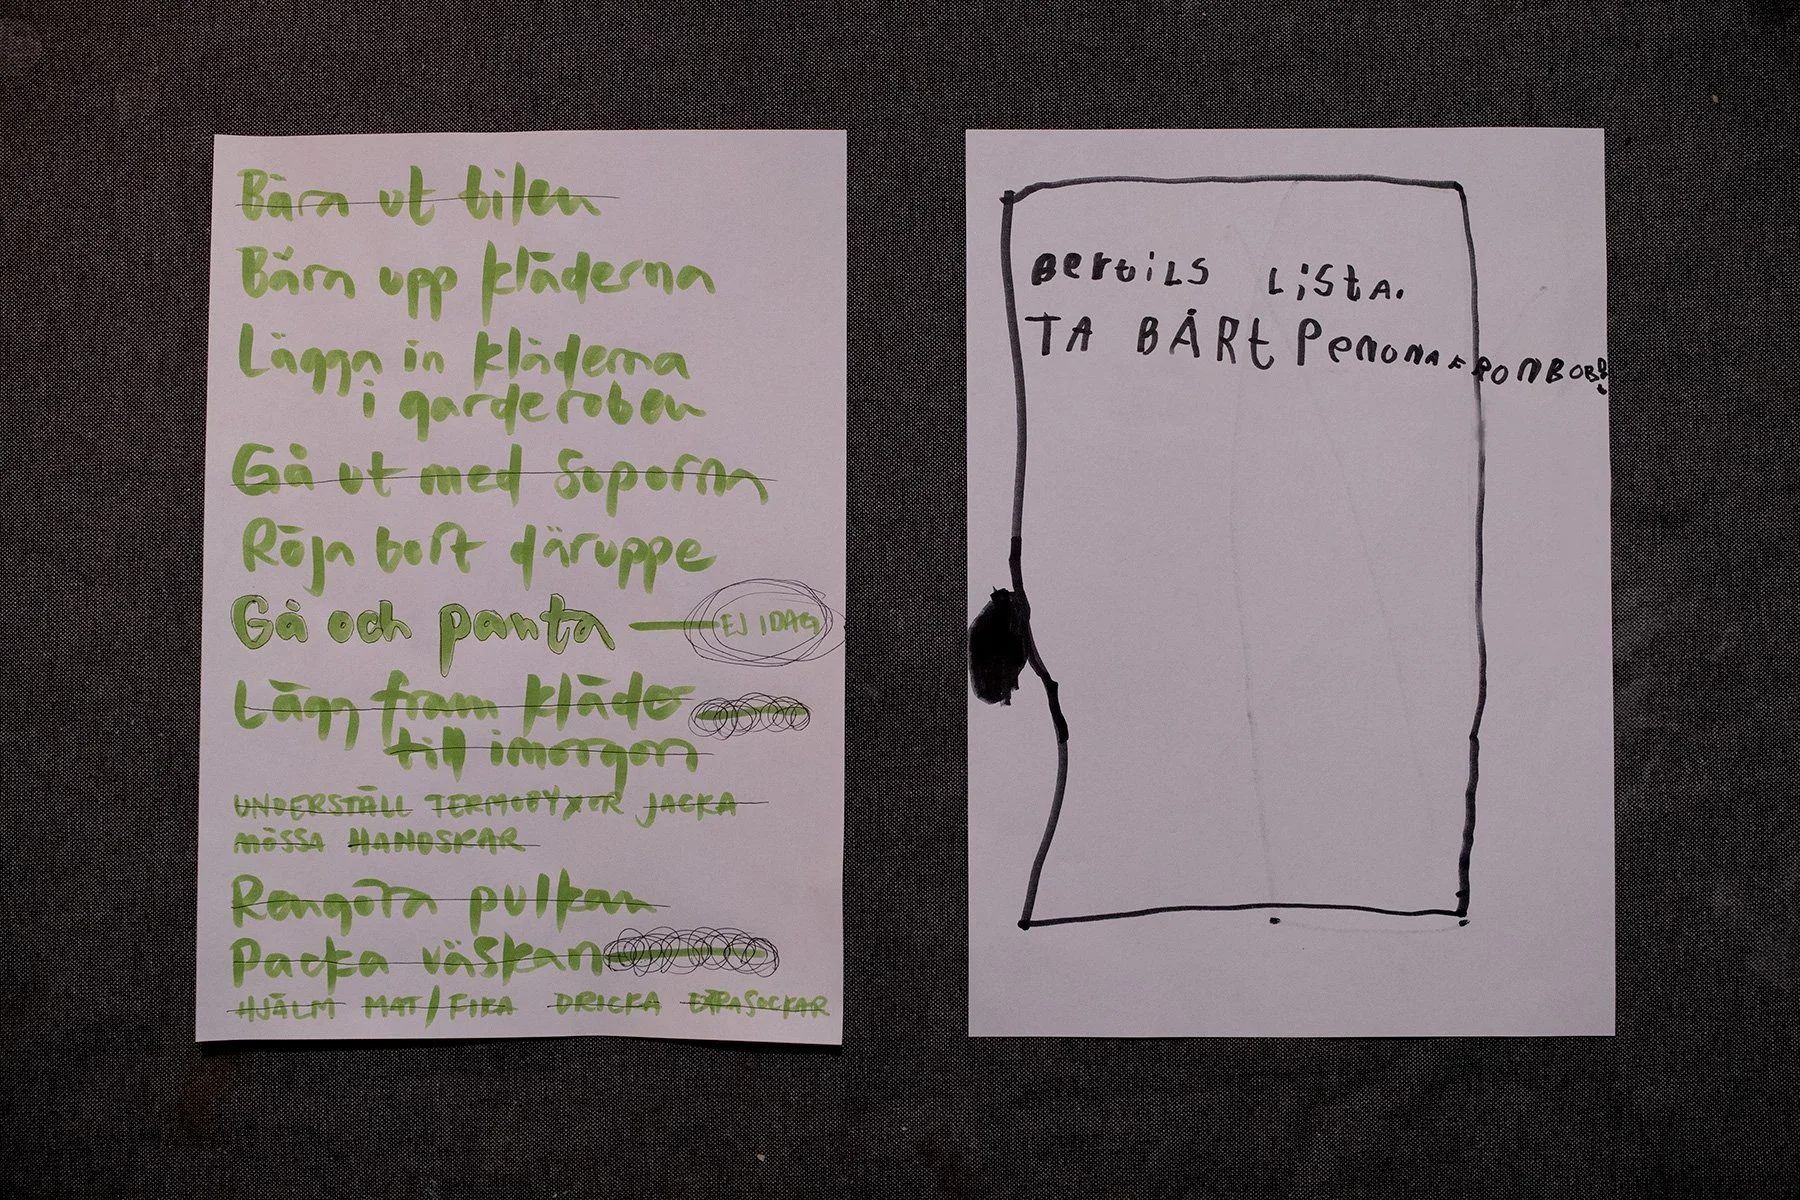 Bära ut bilen
Bära upp kläderna
Lägga in kläderna
i garderoben
Gå ut med soporna
Röja bort däruppe
Gå och panta — EJ IDAG
Lägg fram kläder
till imorgon
UNDERSTÄLL TERMOBYXOR JACKA
MÖSSA HANDSKAR
Rengöra pulkan
Packa väskan
HJÄLM MAT/FIKA DRICKA EXTRASOCKAR
BertiLS LiStA.
TA BÅRt PenonA FRON BOBD